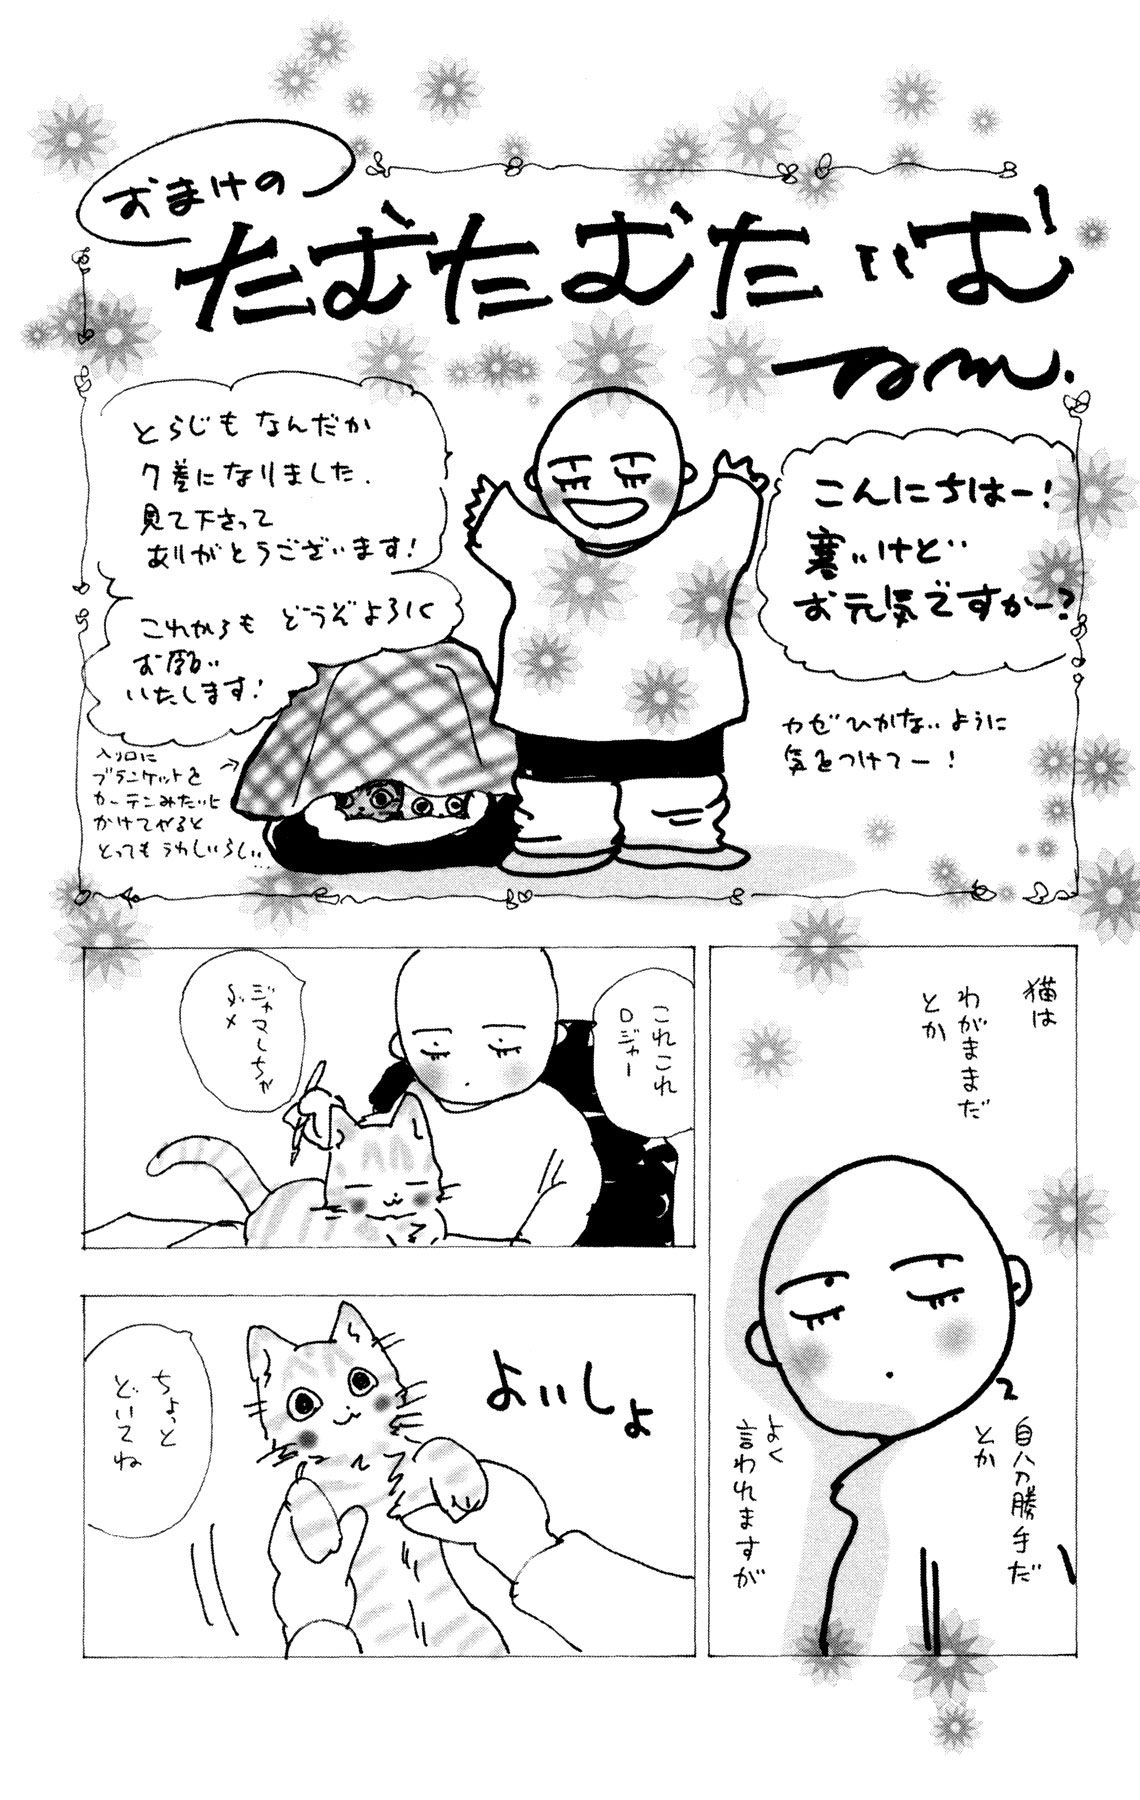 おまけの
たむたむたいむ
こんにちはー!
寒いけど
お元気ですかー?
カゼひかないように
気をつけてー!
とらじもなんだか
7巻になりました.
見て下さって
ありがとうございます!
これからもどうぞよろしく
お願い
いたします!
入り口に
ブランケットを
カーテンみたいに
かけてやると
とってもうれしいらしい…
猫は
わがままだ
とか
自分勝手だ
とか
よく
言われますが
これこれ
ロジャー
ジャマしちゃ
ダメ
よいしょ
ちょっと
どいてね